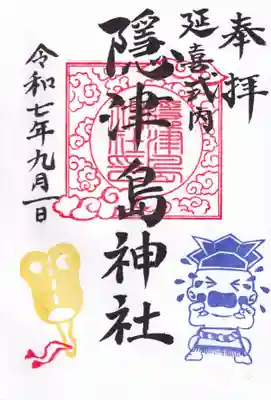 奉拝
延喜式内
隠津島神社
令和七年九月一日